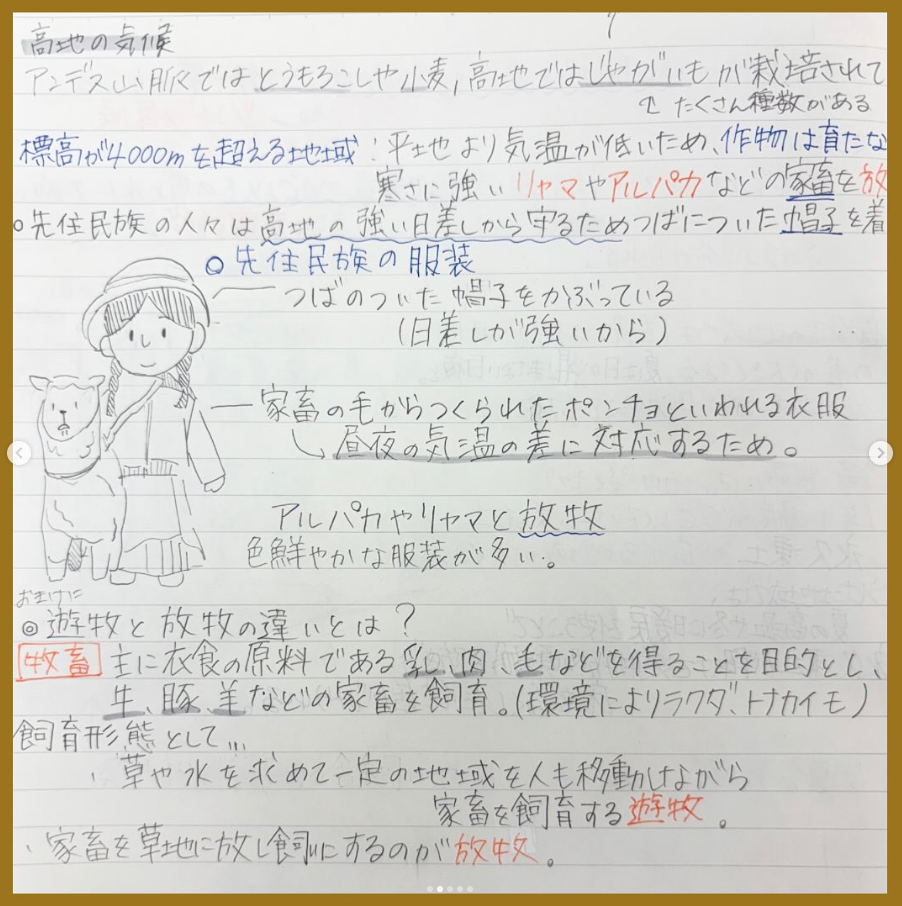 高地の気候
アンデス山脈ではとうもろこしや小麦,高地ではじゃがいもが栽培されて
↑たくさん種数がある
標高が4000mを超える地域：平地より気温が低いため、作物は育たな
寒さに強いリャマやアルパカなどの家畜を放
○先住民族の人々は高地の強い日差しから守るためつばについた帽子を着
○先住民族の服装
つばのついた帽子をかぶっている
(日差しが強いから)
家畜の毛からつくられたポンチョといわれる衣服
↳昼夜の気温の差に対応するため。
アルパカやリャマと放牧
色鮮やかな服装が多い。
おまけに
◎遊牧と放牧の違いとは?
牧畜 主に衣食の原料である乳、肉、毛などを得ることを目的とし、
牛、豚、羊などの家畜を飼育。(環境によりラクダ、トナカイモ)
飼育形態として...
・草や水を求めて一定の地域を人も移動しながら
家畜を飼育する遊牧。
・家畜を草地に放し飼いにするのが放牧。